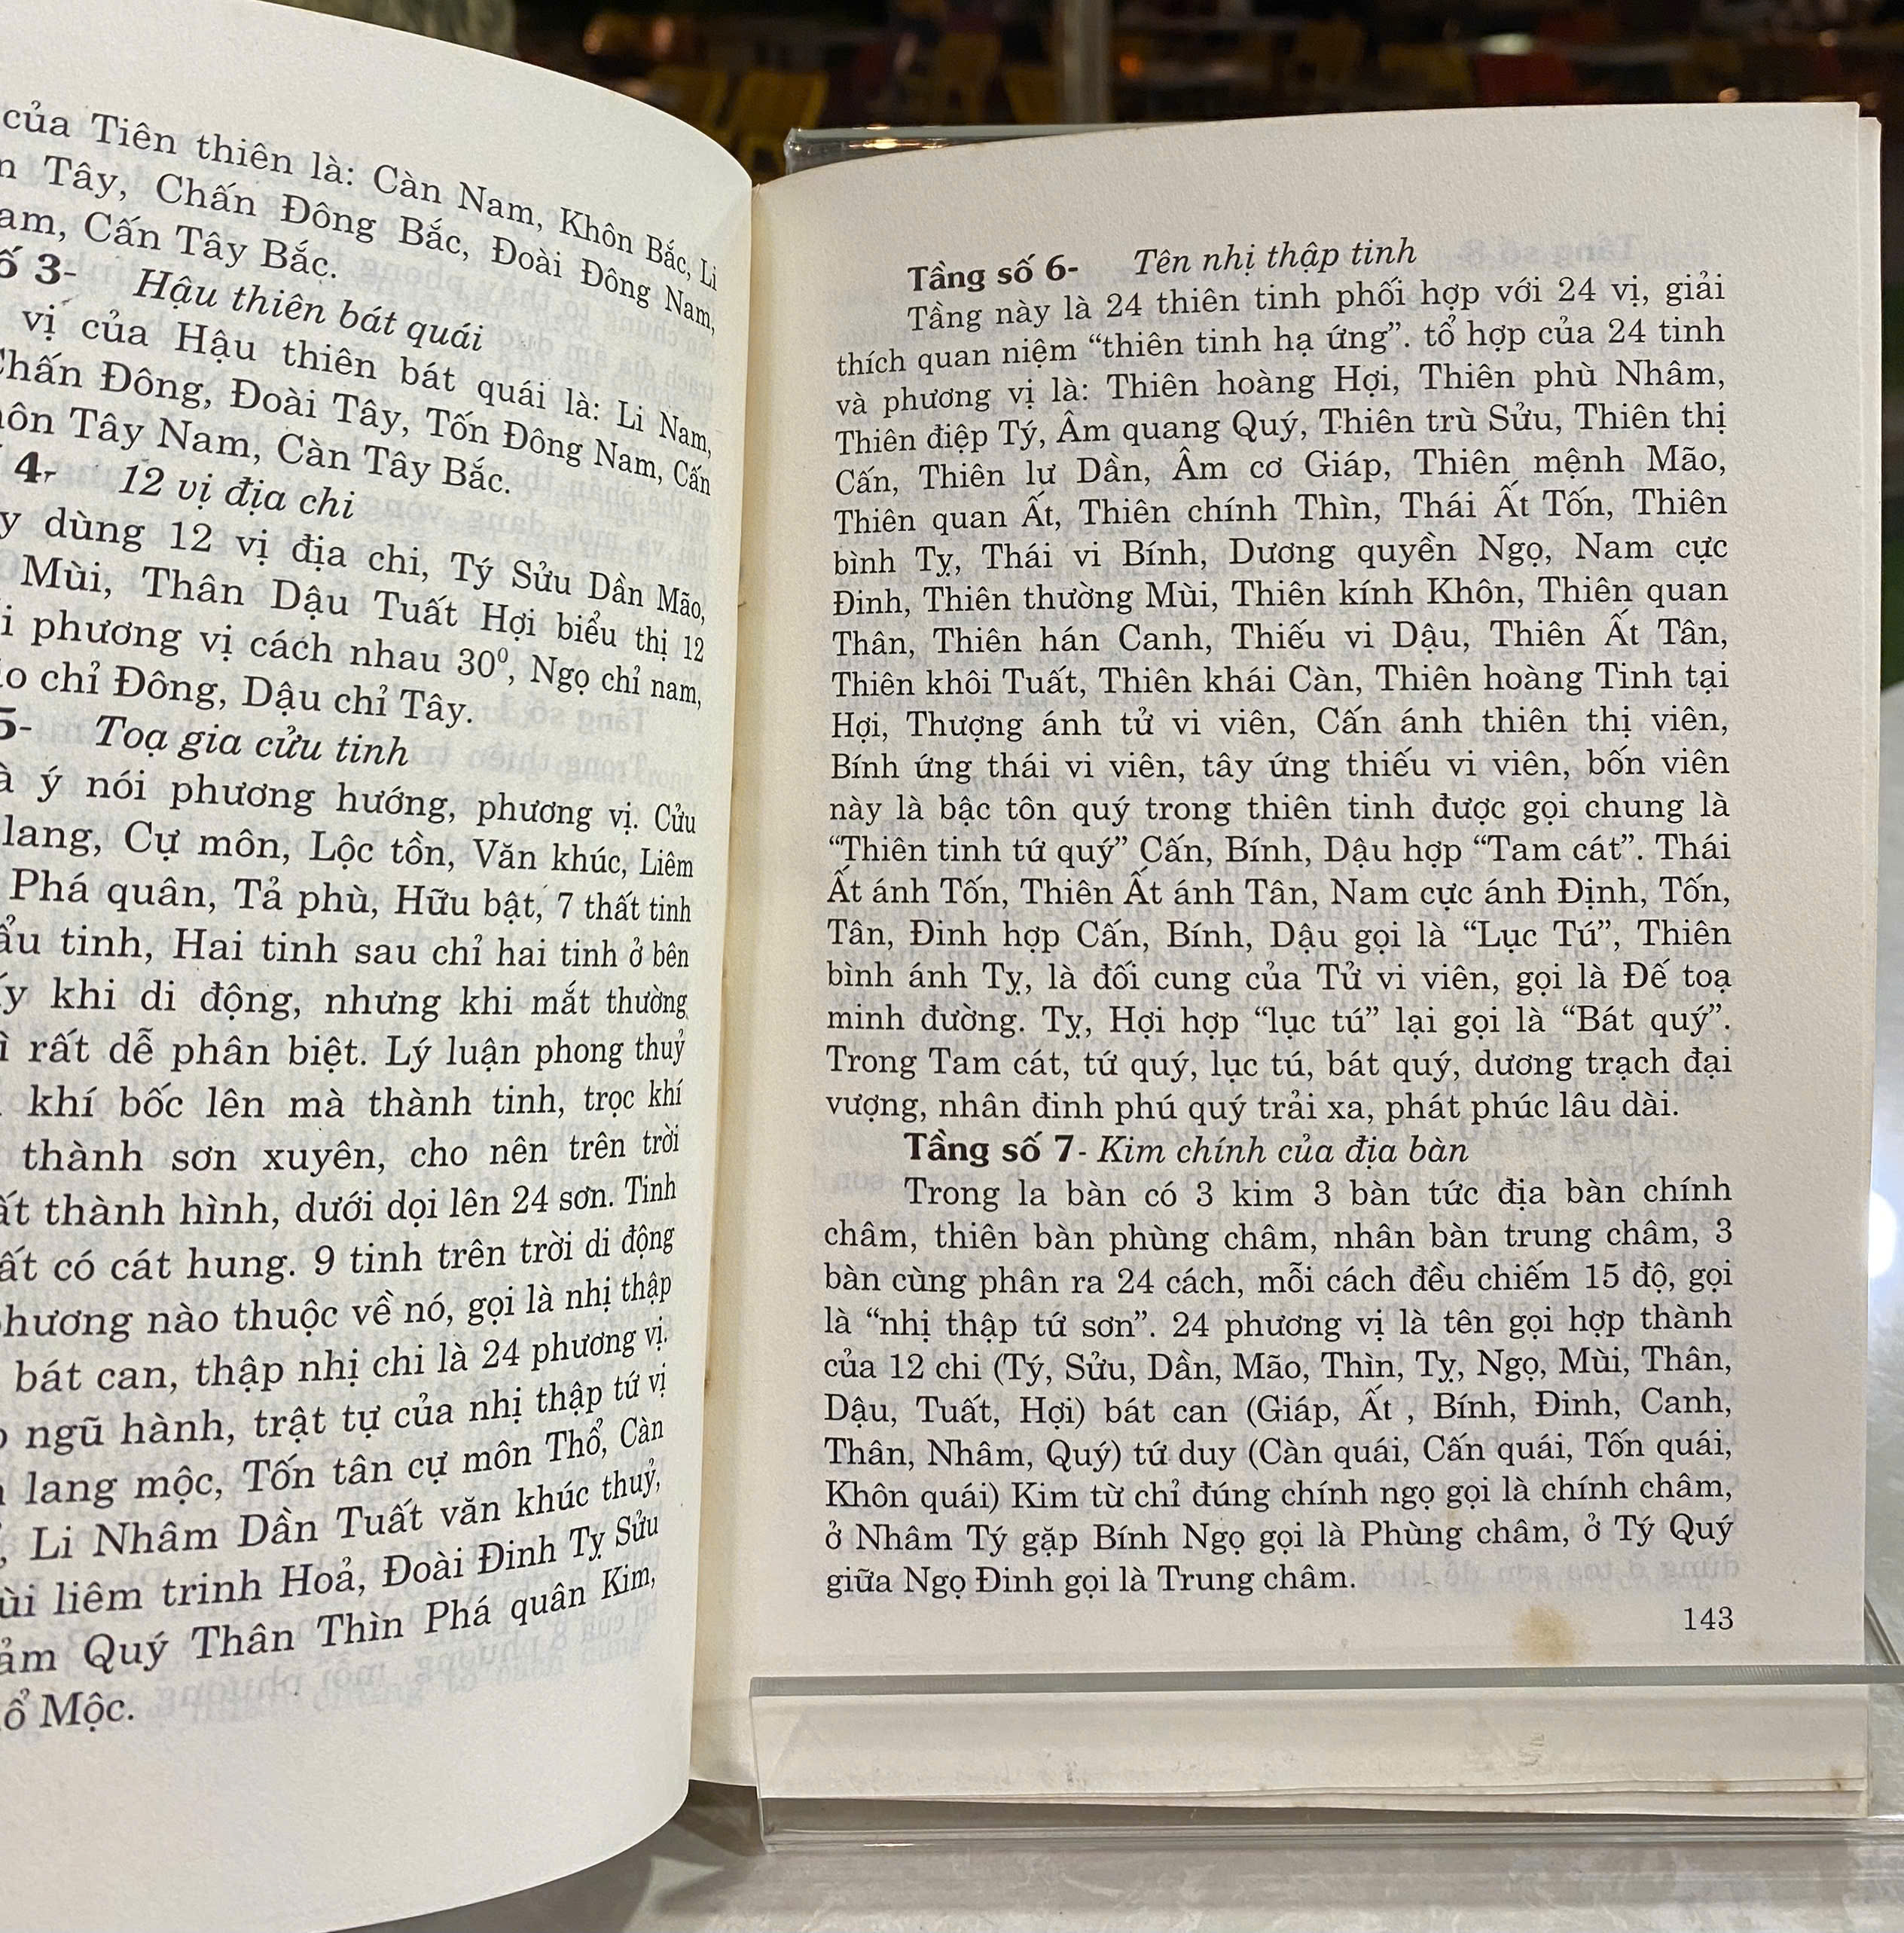 của Tiên thiên là: Càn Nam, Khôn Bắc, Li
Tây, Chấn Đông Bắc, Đoài Đông Nam,
Cấn Tây Bắc.
3- Hậu thiên bát quái
vị của Hậu thiên bát quái là: Li Nam,
Chấn Đông, Đoài Tây, Tốn Đông Nam, Cấn
Tây Nam, Càn Tây Bắc.
4- 12 vị địa chi
dùng 12 vị địa chi, Tý Sửu Dần Mão,
Mùi, Thân Dậu Tuất Hợi biểu thị 12
phương vị cách nhau 30⁰, Ngọ chỉ nam,
chỉ Đông, Dậu chỉ Tây.
5- Toạ gia cửu tinh
ý nói phương hướng, phương vị. Cửu
lang, Cự môn, Lộc tồn, Văn khúc, Liêm
Phá quân, Tả phù, Hữu bật, 7 thất tinh
tinh, Hai tinh sau chỉ hai tinh ở bên
khi di động, nhưng khi mắt thường
rất dễ phân biệt. Lý luận phong thuỷ
khí bốc lên mà thành tinh, trọc khí
thành sơn xuyên, cho nên trên trời
thành hình, dưới dọi lên 24 sơn. Tinh
có cát hung. 9 tinh trên trời di động
phương nào thuộc về nó, gọi là nhị thập
bát can, thập nhị chi là 24 phương vị.
ngũ hành, trật tự của nhị thập tứ vị
lang mộc, Tốn tân cự môn Thổ, Càn
Li Nhâm Dần Tuất văn khúc thuỷ,
liêm trinh Hoả, Đoài Đinh Tỵ Sửu
Quý Thân Thìn Phá quân Kim,
Mộc.
Tầng số 6- Tên nhị thập tinh
Tầng này là 24 thiên tinh phối hợp với 24 vị, giải
thích quan niệm “thiên tinh hạ ứng”. tổ hợp của 24 tinh
và phương vị là: Thiên hoàng Hợi, Thiên phù Nhâm,
Thiên điệp Tý, Âm quang Quý, Thiên trù Sửu, Thiên thị
Cấn, Thiên lư Dần, Âm cơ Giáp, Thiên mệnh Mão,
Thiên quan Ất, Thiên chính Thìn, Thái Ất Tốn, Thiên
bình Tỵ, Thái vi Bính, Dương quyền Ngọ, Nam cực
Đinh, Thiên thường Mùi, Thiên kính Khôn, Thiên quan
Thân, Thiên hán Canh, Thiếu vi Dậu, Thiên Ất Tân,
Thiên khôi Tuất, Thiên khái Càn, Thiên hoàng Tinh tại
Hợi, Thượng ánh tử vi viên, Cấn ánh thiên thị viên,
Bính ứng thái vi viên, tây ứng thiếu vi viên, bốn viên
này là bậc tôn quý trong thiên tinh được gọi chung là
“Thiên tinh tứ quý” Cấn, Bính, Dậu hợp “Tam cát”. Thái
Ất ánh Tốn, Thiên Ất ánh Tân, Nam cực ánh Định, Tốn,
Tân, Đinh hợp Cấn, Bính, Dậu gọi là “Lục Tú”, Thiên
bình ánh Tỵ, là đối cung của Tử vi viên, gọi là Đế toạ
minh đường. Tỵ, Hợi hợp “lục tú” lại gọi là “Bát quý”.
Trong Tam cát, tứ quý, lục tú, bát quý, dương trạch đại
vượng, nhân đinh phú quý trải xa, phát phúc lâu dài.
Tầng số 7- Kim chính của địa bàn
Trong la bàn có 3 kim 3 bàn tức địa bàn chính
châm, thiên bàn phùng châm, nhân bàn trung châm, 3
bàn cùng phân ra 24 cách, mỗi cách đều chiếm 15 độ, gọi
là “nhị thập tứ sơn”. 24 phương vị là tên gọi hợp thành
của 12 chi (Tý, Sửu, Dần, Mão, Thìn, Tỵ, Ngọ, Mùi, Thân,
Dậu, Tuất, Hợi) bát can (Giáp, Ất , Bính, Đinh, Canh,
Thân, Nhâm, Quý) tứ duy (Càn quái, Cấn quái, Tốn quái,
Khôn quái) Kim từ chỉ đúng chính ngọ gọi là chính châm,
ở Nhâm Tý gặp Bính Ngọ gọi là Phùng châm, ở Tý Quý
giữa Ngọ Đinh gọi là Trung châm.
143